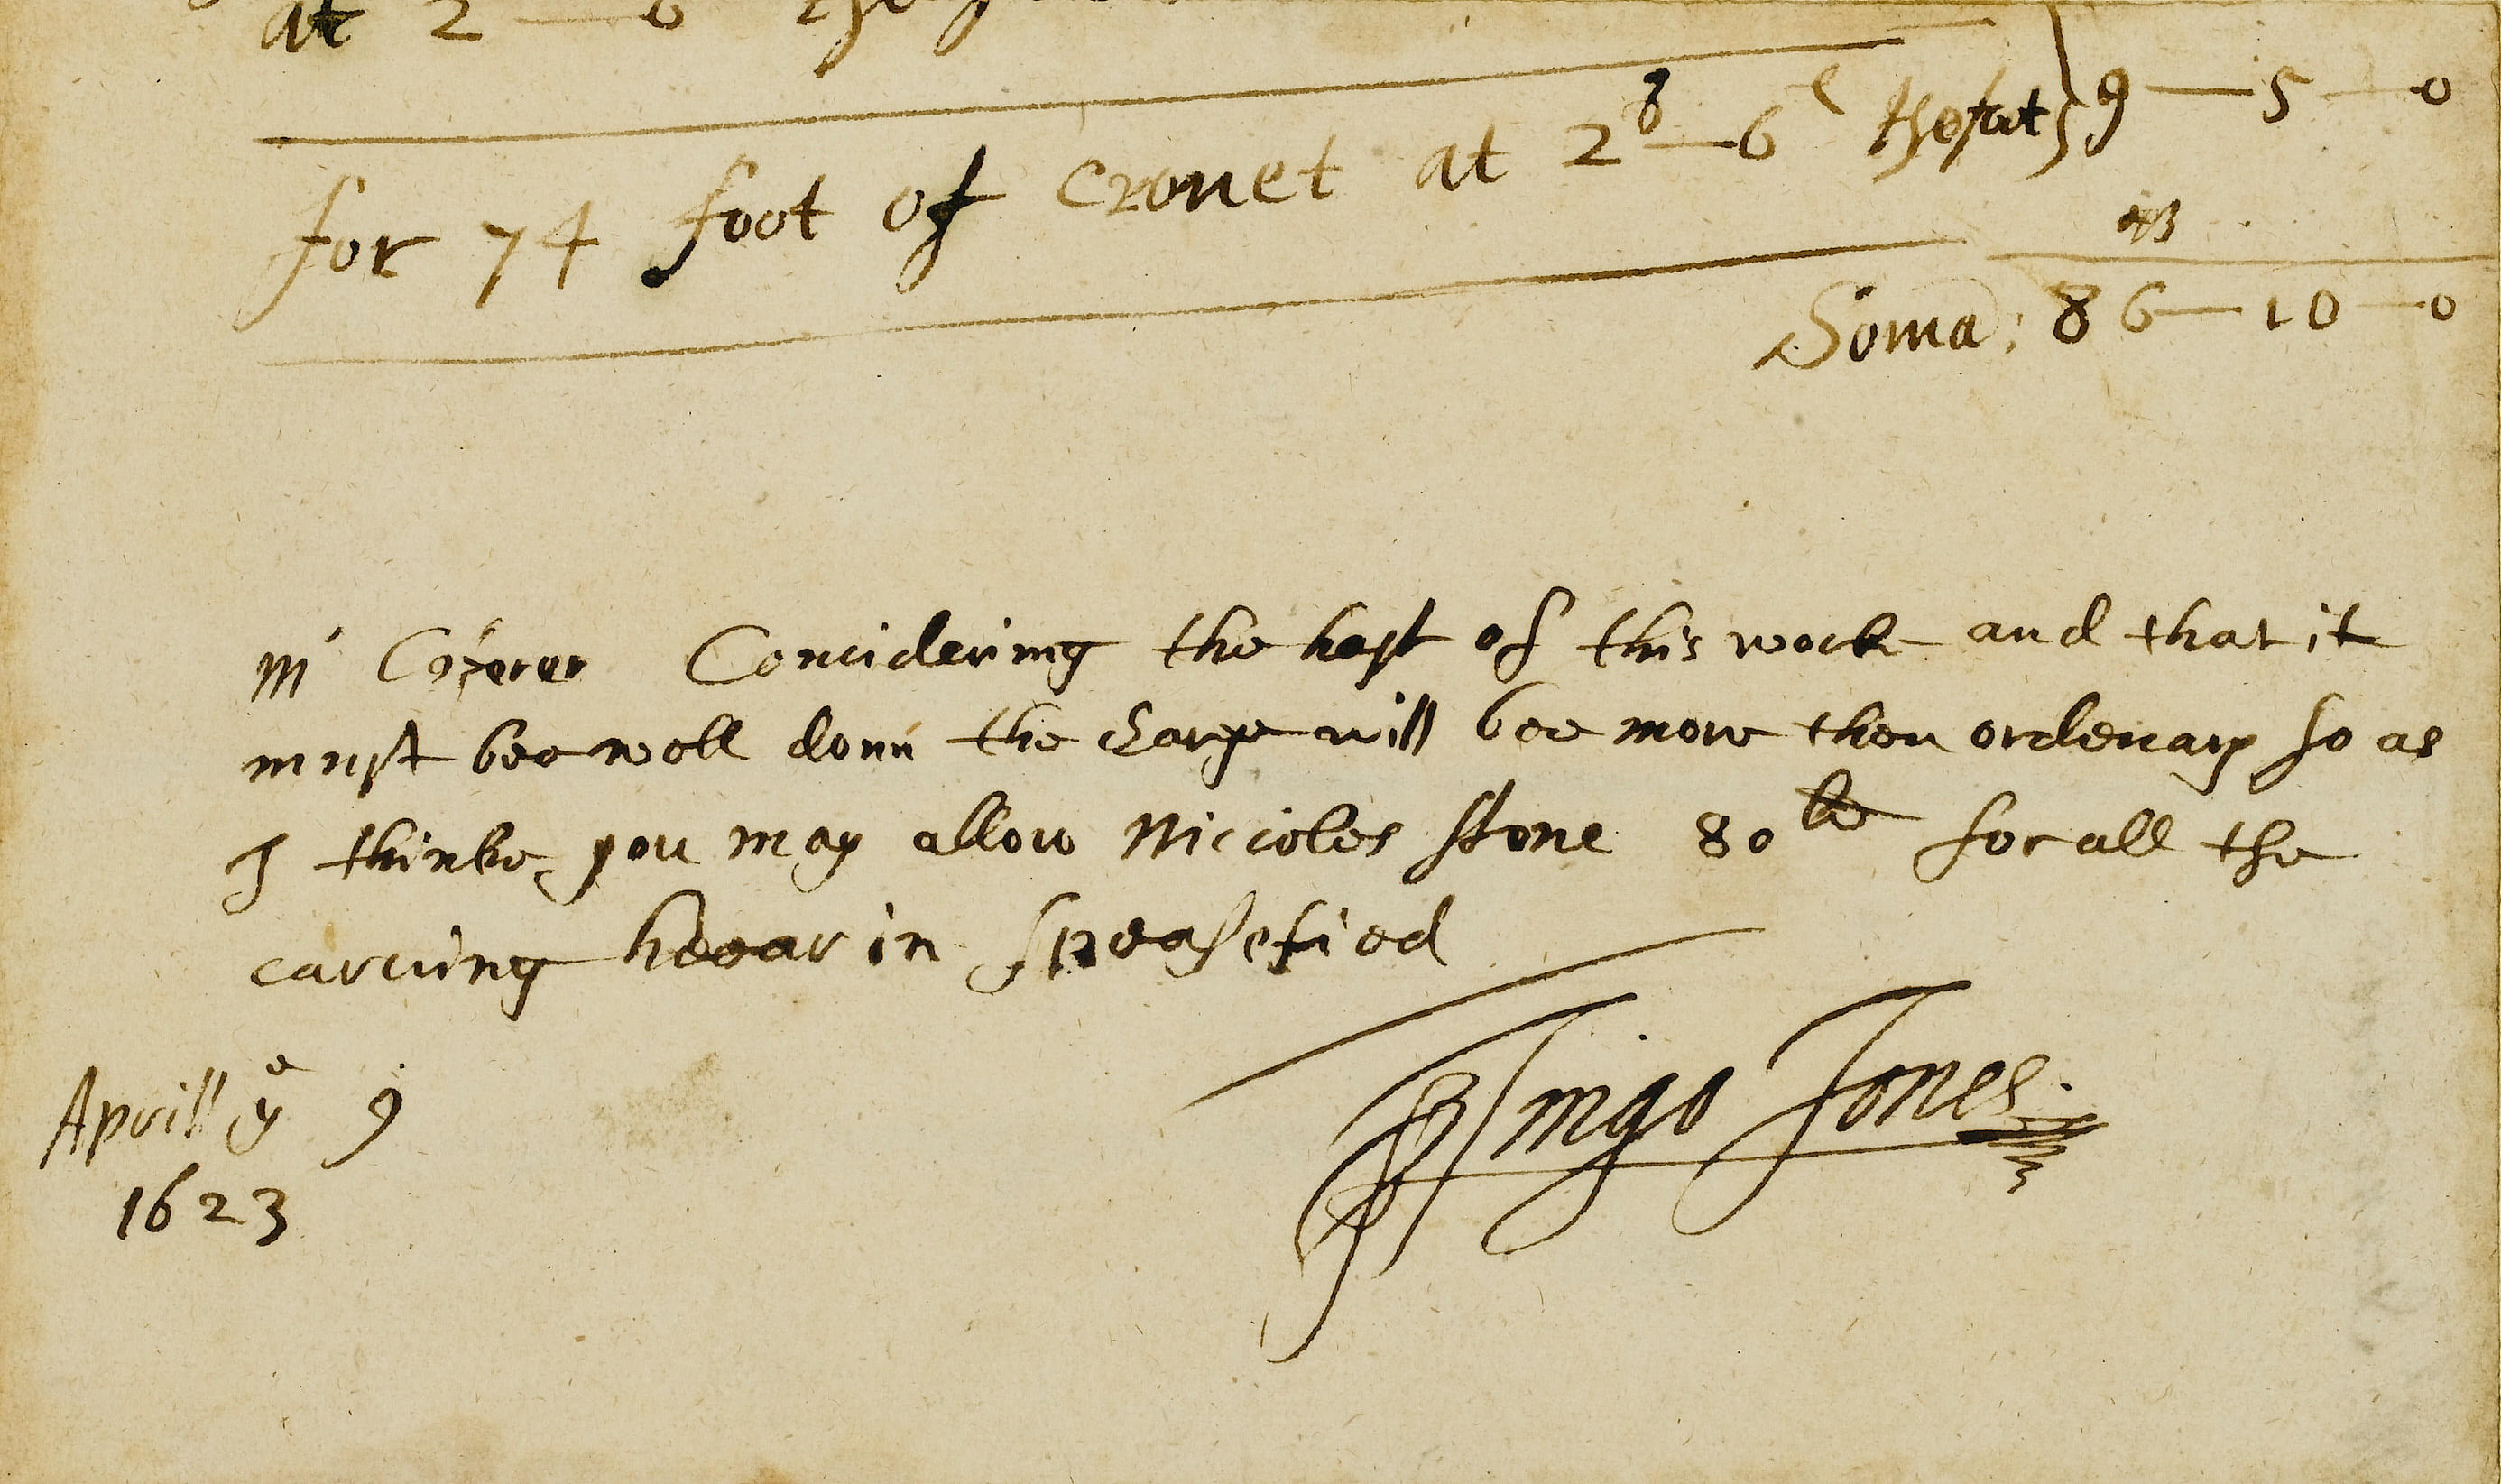 at 2 — 6
for 74 foot of cronet at 2s—6d the fot } 9 — 5 — 0
Soma: 86—10—0
mr Coferer Concidering the hast of this work and that it
must bee well donn the charge will bee more then ordenary so as
I thinke you may allow Niccoles Stone 80 le for all the
carving heear in speasefied
Aprill ye 9
1623
Inigo Jones